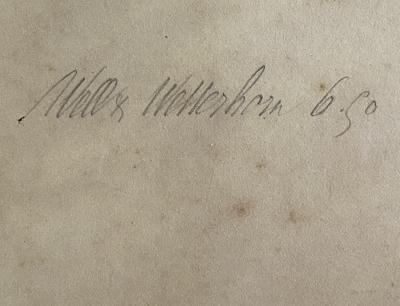 Wills Wetterhorn 6.50